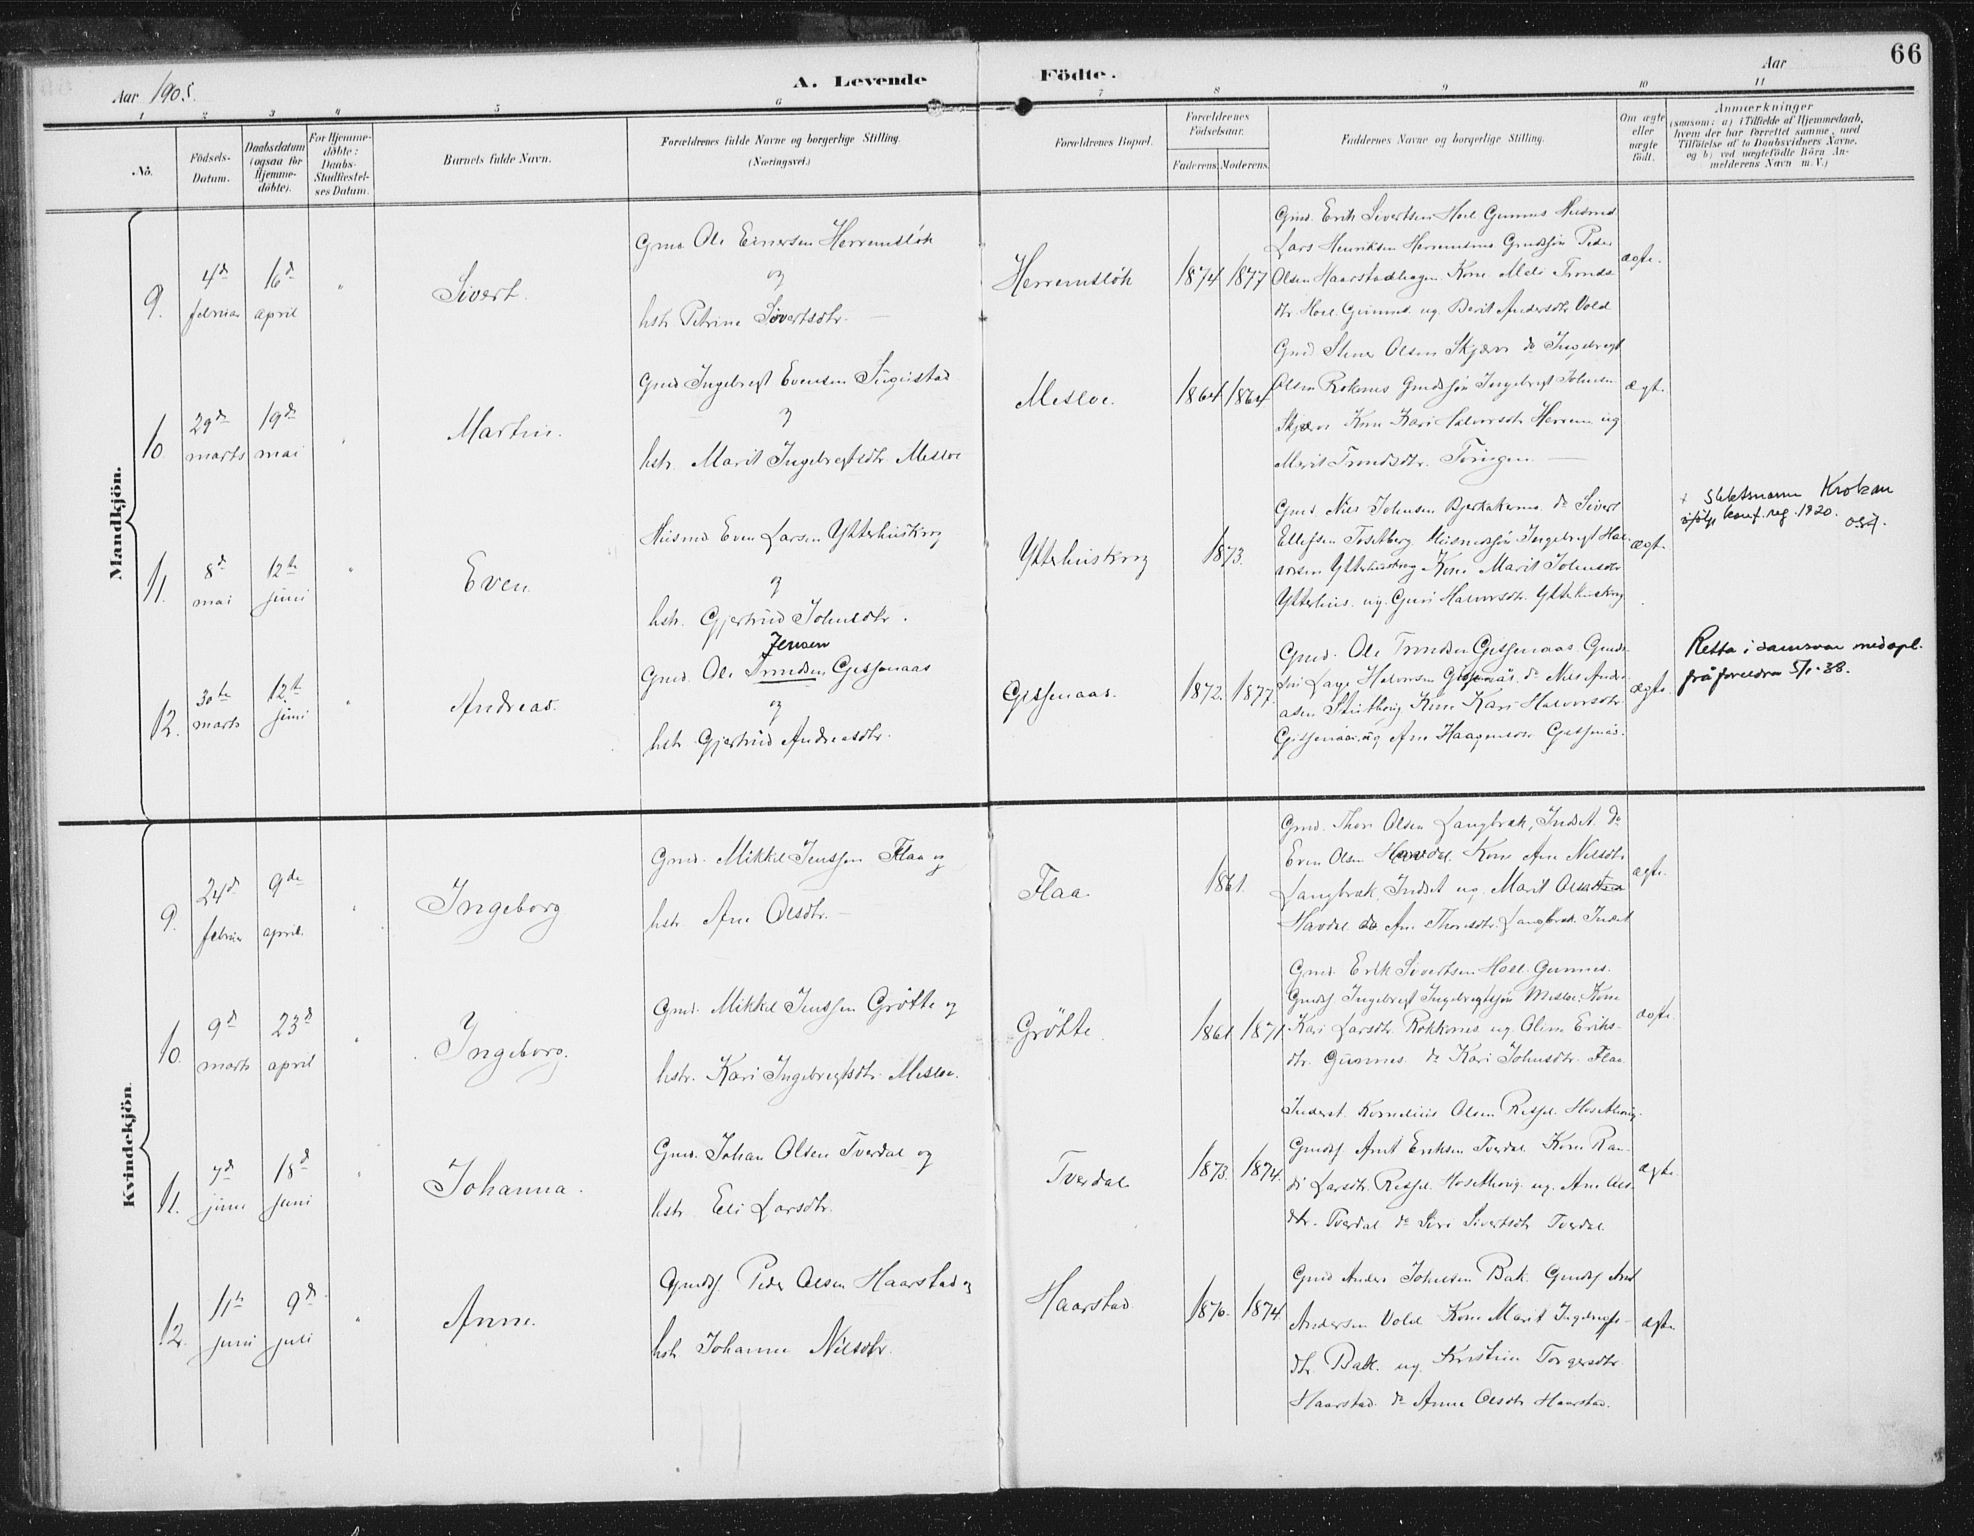 66
Aar 1905.
A. Levende Födte.
Aar
1 2 3 4 5 6 7 8 9 10 11
No.
Födsels-Datum.
Daabsdatum (ogsaa for Hjemmedöbte).
For Hjemmedöbte: Daabs-Stadfæstelses Datum.
Barnets fulde Navn.
Forældrenes fulde Navne og borgerlige Stilling.
(Næringsvei.)
Forældrenes Bopæl.
Forældrenes Födselsaar.
Faderens. Moderens.
Faddernes Navne og borgerlige Stilling.
Om ægte eller uægte födt.
Anmærkninger
(saasom: a) i Tilfælde af Hjemmedaab,
hvem der har forrettet samme, med
Tilföielse af to Daabsvidners Navne,
og b) ved uægtefödte Börn An-
melderens Navn m. V.)
Mandkjön.
9. 4d februar 16d april " Sivert.
Gmd Ole Einersen Herremsløk
og
hstr. Petrine Sivertsdtr.
Herremsløk 1874 1877
Gmd. Erik Sivertsen Hoel Gunnes Husmd.
Lars Henriksen Herremsmo Gmdssøn Peder
Olsen Haarstadhagen Kone Meli Tronds
dtr. Hoel Gunnes ug. Berit Andersdtr Vold
ægte.
10. 29d marts 19d mai " Martin.
Gmd Ingebregt Evensen
og
hstr. Marit Ingebregtsdtr. Mesloe
Mesloe. 1864 1864
Gmd Stener Olsen Skjærv do Ingebregt
Olsen Roknes Gmdssøn Ingebregt Johnsen
Skjærv Kone Kari Halvorsdtr Herrem ug
Marit Trondsdtr.
ægte.
11. 8d mai 12te juni " Even.
Husmd Even Larsen Ytterhuskrog
og
hstr. Gjertrud Johnsdtr.
Ytterhuskrog 1873.
Gmd Nils Johnsen Bjerkakernes do Sivert
Ellefsen Tosetberg Husmdssøn Ingebregt Hal-
vorsen Ytterhuskrog Kone Marit Johnsdtr
Ytterhus. ug. Guri Halvorsdtr. Ytterhuskrog
ægte
+ Slektsnamn Krokan
ifølge konf.reg. 1920.
12. 30te marts 12te juni " Andreas.
Jensen
Gmd. Ole Trondsen Gisjenaas
og
hstr. Gjertrud Andreasdtr.
Gisjenaas. 1872. 1877.
Gmd. Ole Trondsen Gisjenaas Gmds-
søn Lage Halvorsen Gisjenaas. do Nils Andre-
asen Kone Kari Halvorsdtr
Gisjenaas, ug Ane Haagensdtr Gisjenaas.
ægte.
Retta i samsvar med opl.
frå foreldra 5/1-38.
Kvindekjön.
9. 24d februar 9de april. " Ingeborg
Gmd. Mikkel Jenssen Flaa og
hstr. Ane Olsdtr.
Flaa 1861.
Gmd. Thore Olsen Langbræk, Indset do
Even Olsen Havdal. Kone Ane Nilsdtr.
Langbræk, Indset ug. Marit Olsdtr
Havdal do Ane Thoresdtr. Langbræk Indset
ægte.
10. 9d marts 23d april " Ingeborg.
Gmd. Mikkel Jenssen Grötte og
hstr. Kari Ingebregtsdtr. Mesloe.
Grötte. 1861 1871
Gmd. Erik Sivertsen Hoel. Gunnes.
Gmds Ingebregt Ingebregtssøn Mesloe. Kone
Kari Larsdtr. Rokkones ug. Oline Eriks-
dtr. Gunnes. do Kari Johnsdtr. Flaa
ægte.
11. 7d juni 18d juni " Johanna.
Gmd. Johan Olsen Tverdal og
hstr. Eli Larsdtr.
Tverdal 1873. 1874.
Inderst. Kornelius Olsen Resjel. Hosethaug.
Gmds. Arnt Eriksen Tverdal Kone Ran-
di Larsdtr. Resjel. Hosethaug. ug. Ane Ols-
dtr. Tverdal do Siri Sivertsdtr Tverdal
ægte.
12. 11te juni 9de juli " Anne.
Gmds. Peder Olsen Haarstad og
hstr. Johanne Nilsdtr.
Haarstad. 1870. 1874.
Gmd Anders Johnsen Bak. Gmds Arnt
Andersen Vold Kone Marit Ingebregts-
dtr. Bak. ug. Kristine Torgersdtr.
Haarstad. do Anne Olsdtr Haarstad.
ægte.